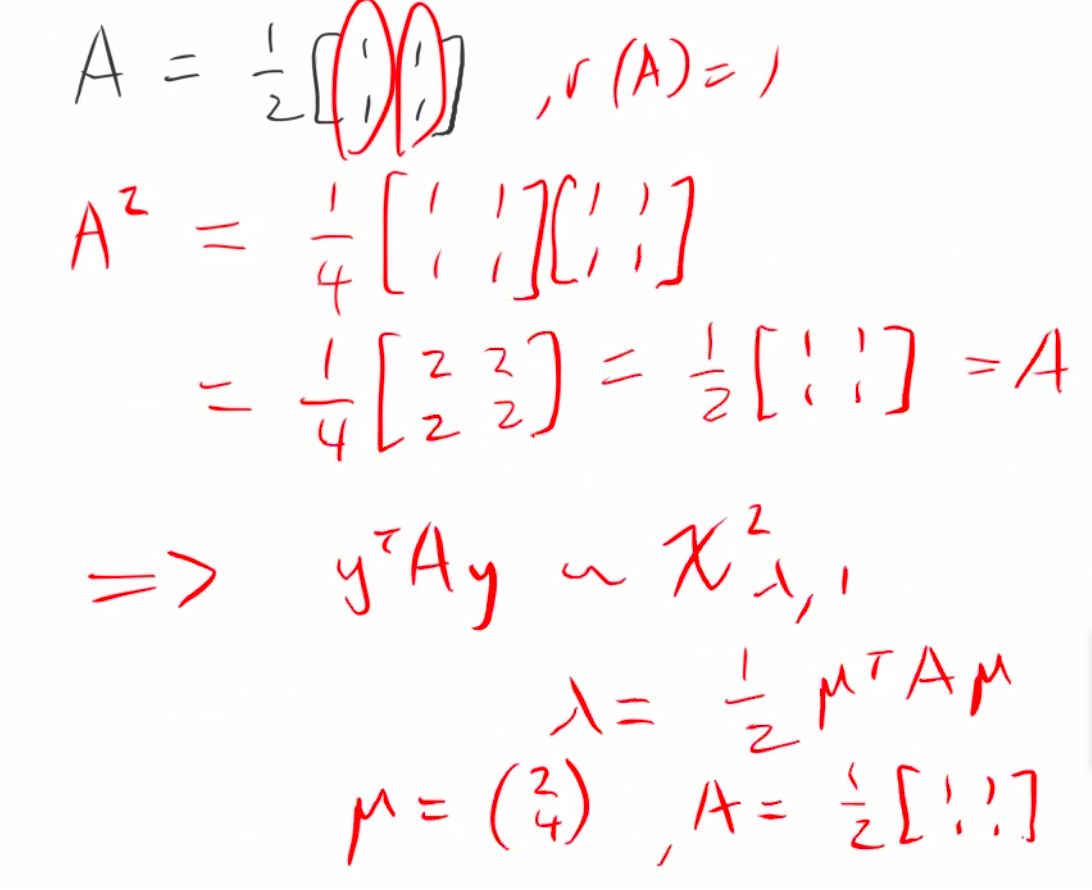 A = 1/2 [1 1; 1 1] , r(A) = 1
A² = 1/4 [1 1; 1 1][1 1; 1 1]
= 1/4 [2 2; 2 2] = 1/2 [1 1; 1 1] = A
=> yᵀAy ~ χ²λ,1
λ = 1/2 μᵀAμ
μ = (2; 4) , A = 1/2 [1 1; 1 1]